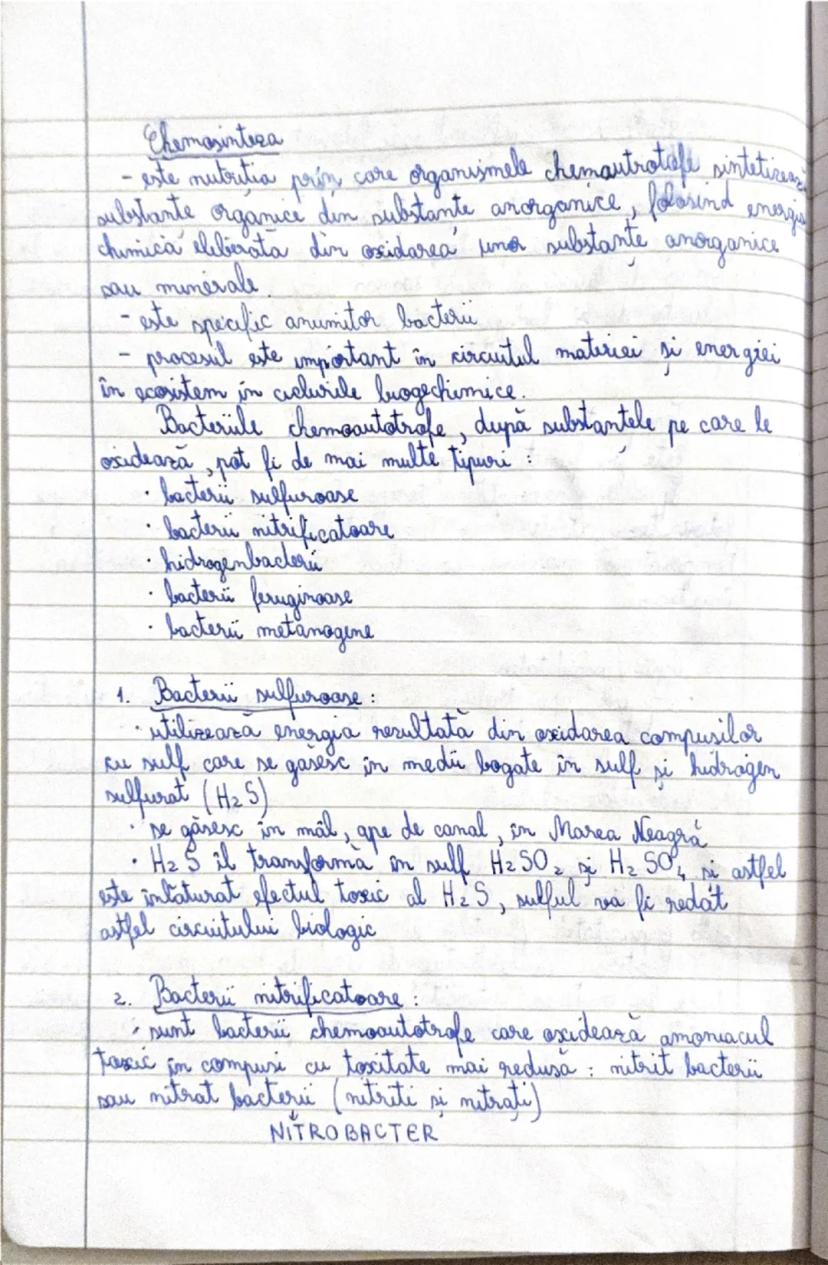 Chemosinteza
- este nutritia prin care organismele chemautrotofe sintetizează
substante organice din substante anorganice, folosind energia
chimică eliberată din oxidarea unor substanțe anorganice
sau minerale.
- este specific anumitor bacterii
- procesul este important în circuitul materiei și energiei
în ecosistem în ciclurile biogechimice.
Bacteriile chemoautotrofe, după substanțele pe care le
oxidează, pot fi de mai multe tipuri :
· bacterii sulfuroase
· bacterii nitrificatoare
· hidrogenbacterii
· bacterii feruginoase
· bacterii metanogene
1. Bacterii sulfuroase :
· utilizează energia rezultată din oxidarea compusilor
cu sulf care se găsesc în medii bogate în sulf și hidrogen
sulfurat (H2S)
· se găsesc în mâl, ape de canal, în Marea Neagră
· H2S îl transformă în sulf H2SO2 și H2SO4 și astfel
este înlăturat efectul toxic al H2S, sulful va fi redat
astfel circuitului biologic
2. Bacterii nitrificatoare :
· sunt bacterii chemoautotrofe care oxidează amoniacul
toxic în compusi cu toxitate mai redusă : nitrit bacterii
sau nitrat bacterii (nitriti și nitrați)
NITROBACTER